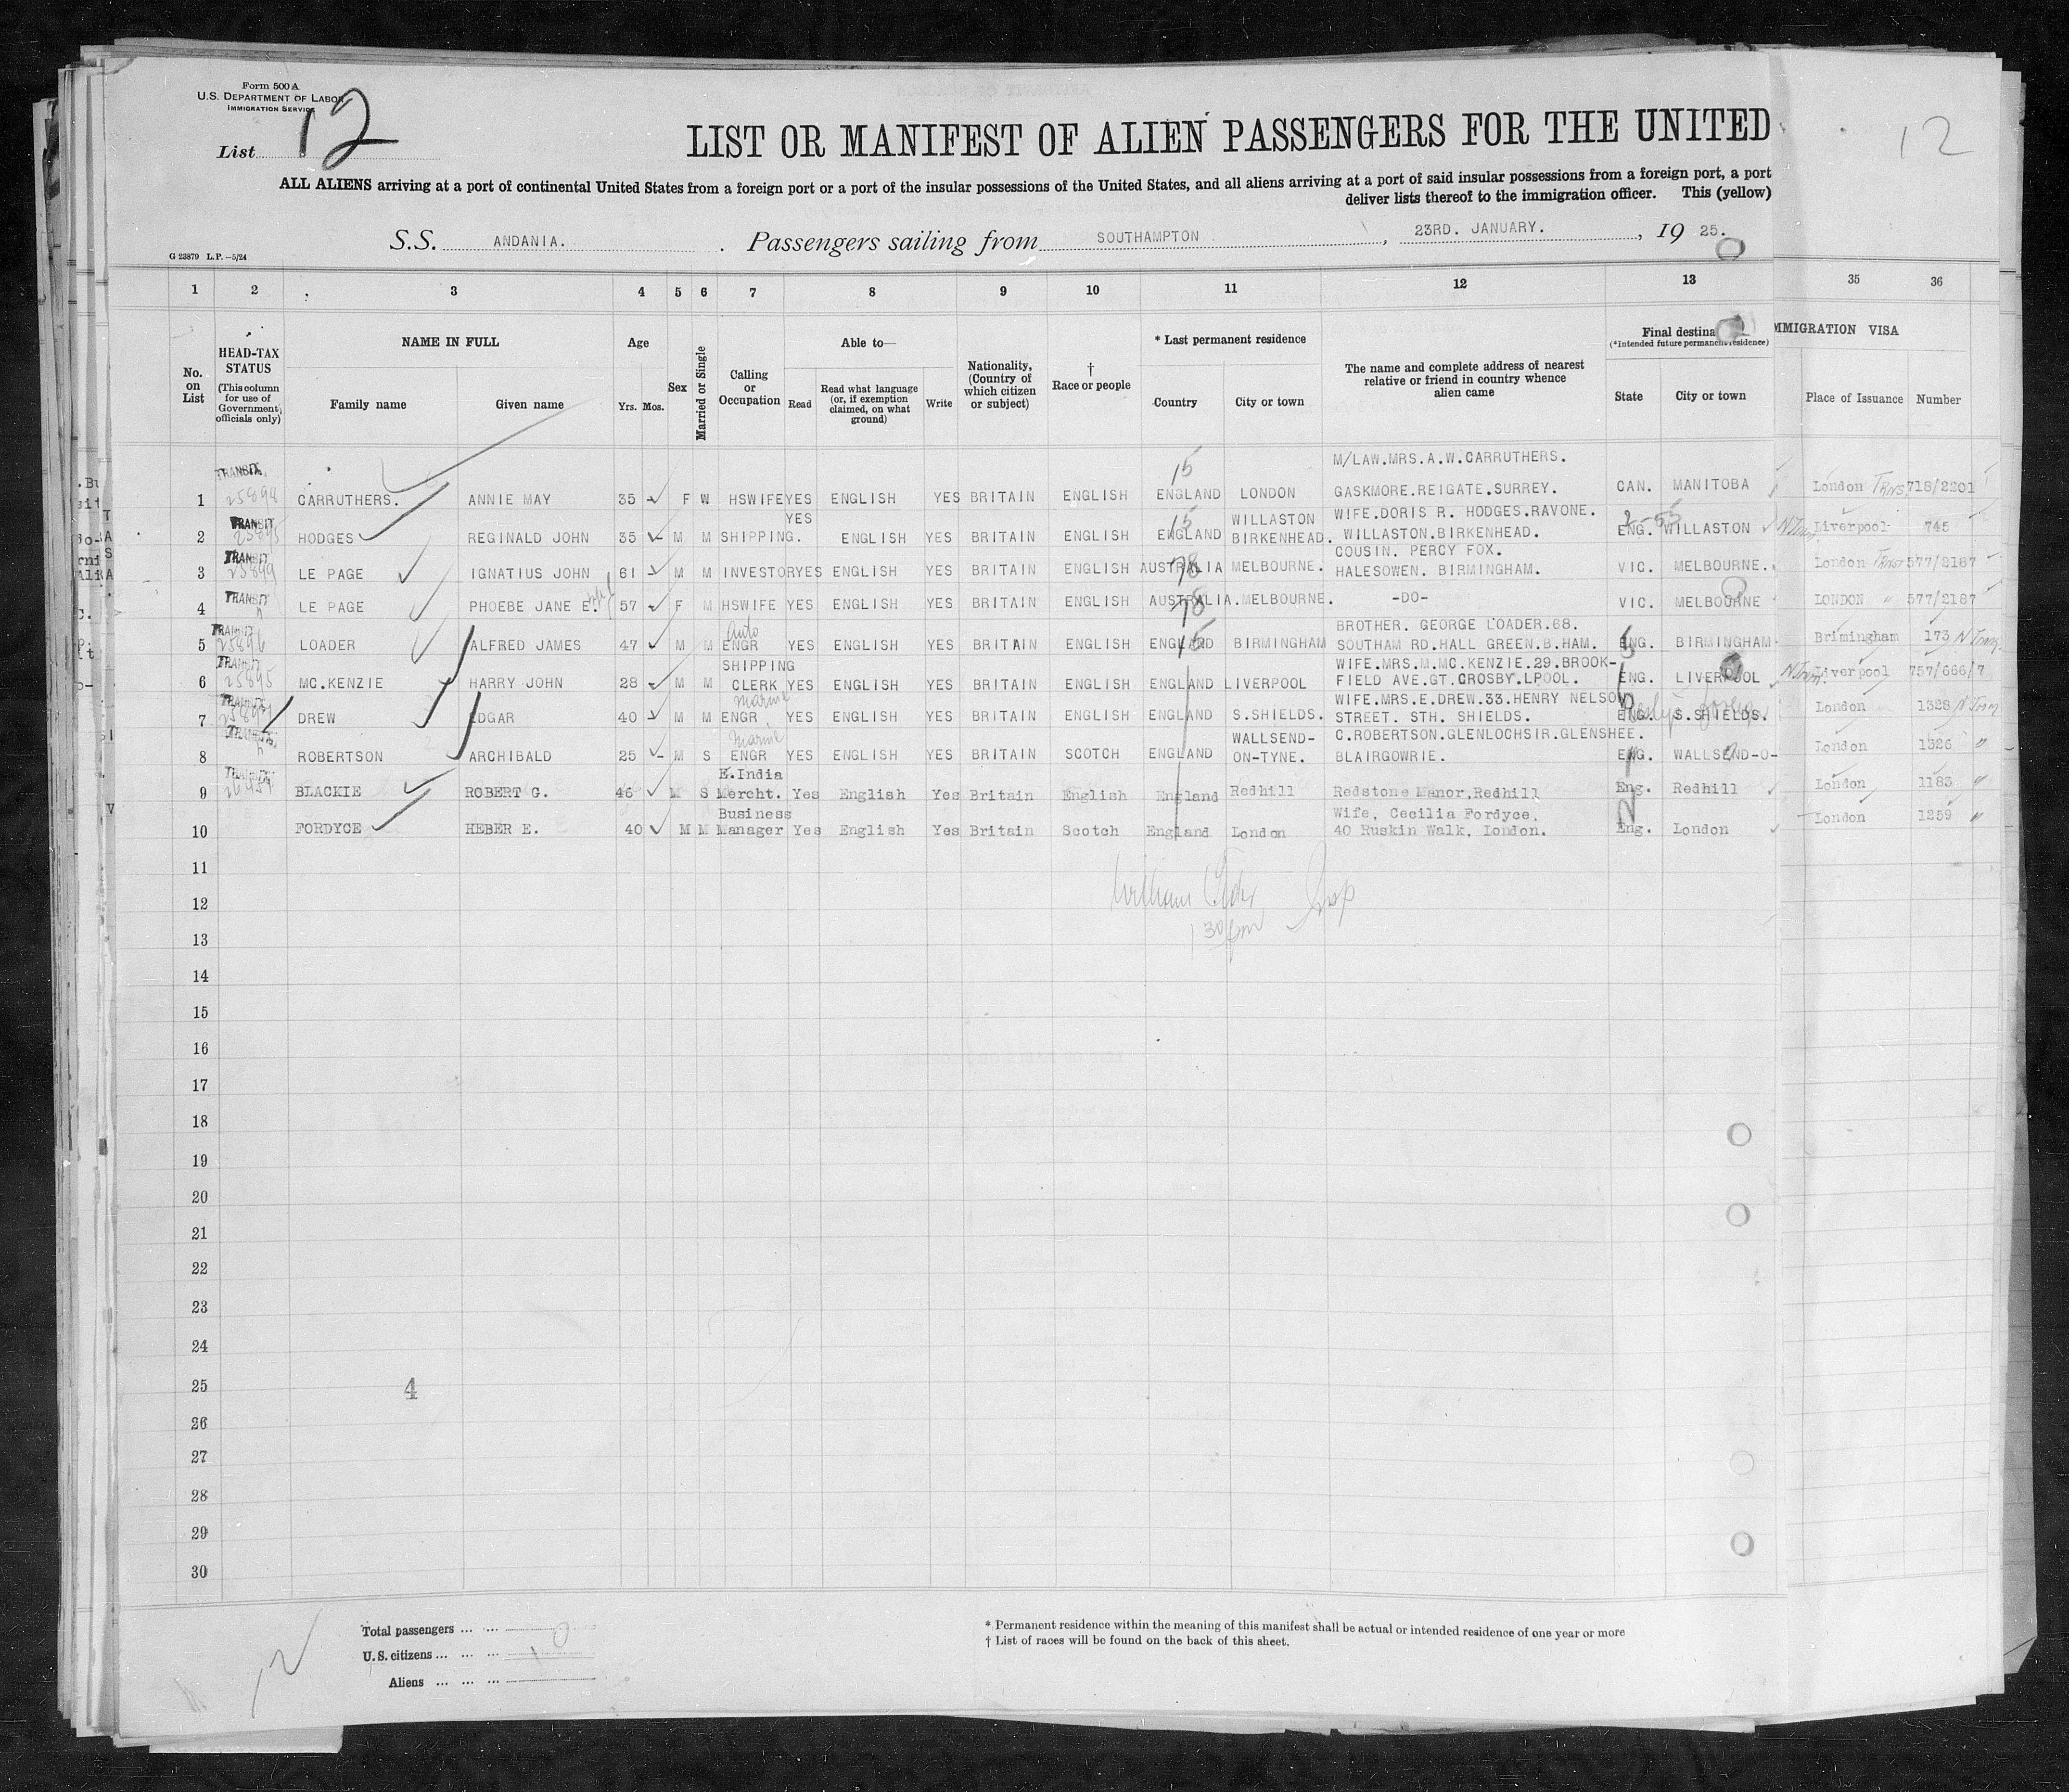 Form 500 A
U.S. DEPARTMENT OF LABOR
IMMIGRATION SERVICE
List 12
12
LIST OR MANIFEST OF ALIEN PASSENGERS FOR THE UNITED
ALL ALIENS arriving at a port of continental United States from a foreign port or a port of the insular possessions of the United States, and all aliens arriving at a port of said insular possessions from a foreign port, a port
deliver lists thereof to the immigration officer. This (yellow)
S.S. ANDANIA. Passengers sailing from SOUTHAMPTON, 23RD. JANUARY., 19 25.
G 23879 L.P.—5/24
1 2 3 4 5 6 7 8 9 10 11 12 13 35 36
No. on List
HEAD-TAX STATUS (This column for use of Government officials only)
NAME IN FULL
Family name Given name
Age
Yrs. Mos.
Sex
Married or Single
Calling or Occupation
Able to—
Read
Read what language (or, if exemption claimed, on what ground)
Write
Nationality, (Country of which citizen or subject)
† Race or people
* Last permanent residence
Country City or town
The name and complete address of nearest relative or friend in country whence alien came
Final destina
(*Intended future permanent residence)
State City or town
MMIGRATION VISA
Place of Issuance Number
M/LAW.MRS.A.W.CARRUTHERS.
1 TRANSIT 25894 CARRUTHERS. ANNIE MAY 35 F W HSWIFE YES ENGLISH YES BRITAIN ENGLISH 15 ENGLAND LONDON GASKMORE.REIGATE.SURREY. CAN. MANITOBA London Trans 718/2201
YES WILLASTON WIFE.DORIS R. HODGES.RAVONE.
2 TRANSIT 25895 HODGES REGINALD JOHN 35 M M SHIPPING. ENGLISH YES BRITAIN ENGLISH 15 ENGLAND BIRKENHEAD. WILLASTON.BIRKENHEAD. ENG. WILLASTON Liverpool 745
COUSIN. PERCY FOX.
3 TRANSIT 25899 LE PAGE IGNATIUS JOHN 61 M M INVESTOR YES ENGLISH YES BRITAIN ENGLISH AUSTRALIA 78 MELBOURNE. HALESOWEN. BIRMINGHAM. VIC. MELBOURNE. London Trans 577/2187
4 TRANSIT LE PAGE PHOEBE JANE E. 57 F M HSWIFE YES ENGLISH YES BRITAIN ENGLISH AUSTRALIA. 78 MELBOURNE. -DO- VIC. MELBOURNE LONDON " 577/2187
Auto BROTHER. GEORGE LOADER.68.
5 TRANSIT 25896 LOADER ALFRED JAMES 47 M M ENGR YES ENGLISH YES BRITAIN ENGLISH ENGLAND BIRMINGHAM SOUTHAM RD.HALL GREEN.B.HAM. ENG. BIRMINGHAM. Brimingham 173
SHIPPING WIFE.MRS.M.MC.KENZIE.29.BROOK-
6 TRANSIT 25895 MC.KENZIE HARRY JOHN 28 M M CLERK YES ENGLISH YES BRITAIN ENGLISH ENGLAND LIVERPOOL FIELD AVE.GT.CROSBY.LPOOL. ENG. LIVERPOOL Liverpool 757/666/7
Marine WIFE.MRS.E.DREW.33.HENRY NELSON
7 TRANSIT DREW EDGAR 40 M M ENGR. YES ENGLISH YES BRITAIN ENGLISH ENGLAND S.SHIELDS. STREET. STH. SHIELDS. ENG. S.SHIELDS. London 1328
Marine WALLSEND- C.ROBERTSON.GLENLOCHSIR.GLENSHEE.
8 TRANSIT ROBERTSON ARCHIBALD 25 M S ENGR YES ENGLISH YES BRITAIN SCOTCH ENGLAND ON-TYNE. BLAIRGOWRIE. ENG. WALLSEND-O- London 1326 "
E.India
9 TRANSIT BLACKIE ROBERT G. 46 M S Mercht. Yes English Yes Britain English England Redhill Redstone Manor,Redhill Eng. Redhill London 1183 "
Business Wife, Cecilia Fordyce,
10 FORDYCE HEBER E. 40 M M Manager Yes English Yes Britain Scotch England London 40 Ruskin Walk, London. Eng. London London 1259 "
11
12
13
14
15
16
17
18
19
20
21
22
23
24
25 4
26
27
28
29
30
Total passengers
U.S. citizens
Aliens
* Permanent residence within the meaning of this manifest shall be actual or intended residence of one year or more
† List of races will be found on the back of this sheet.
12